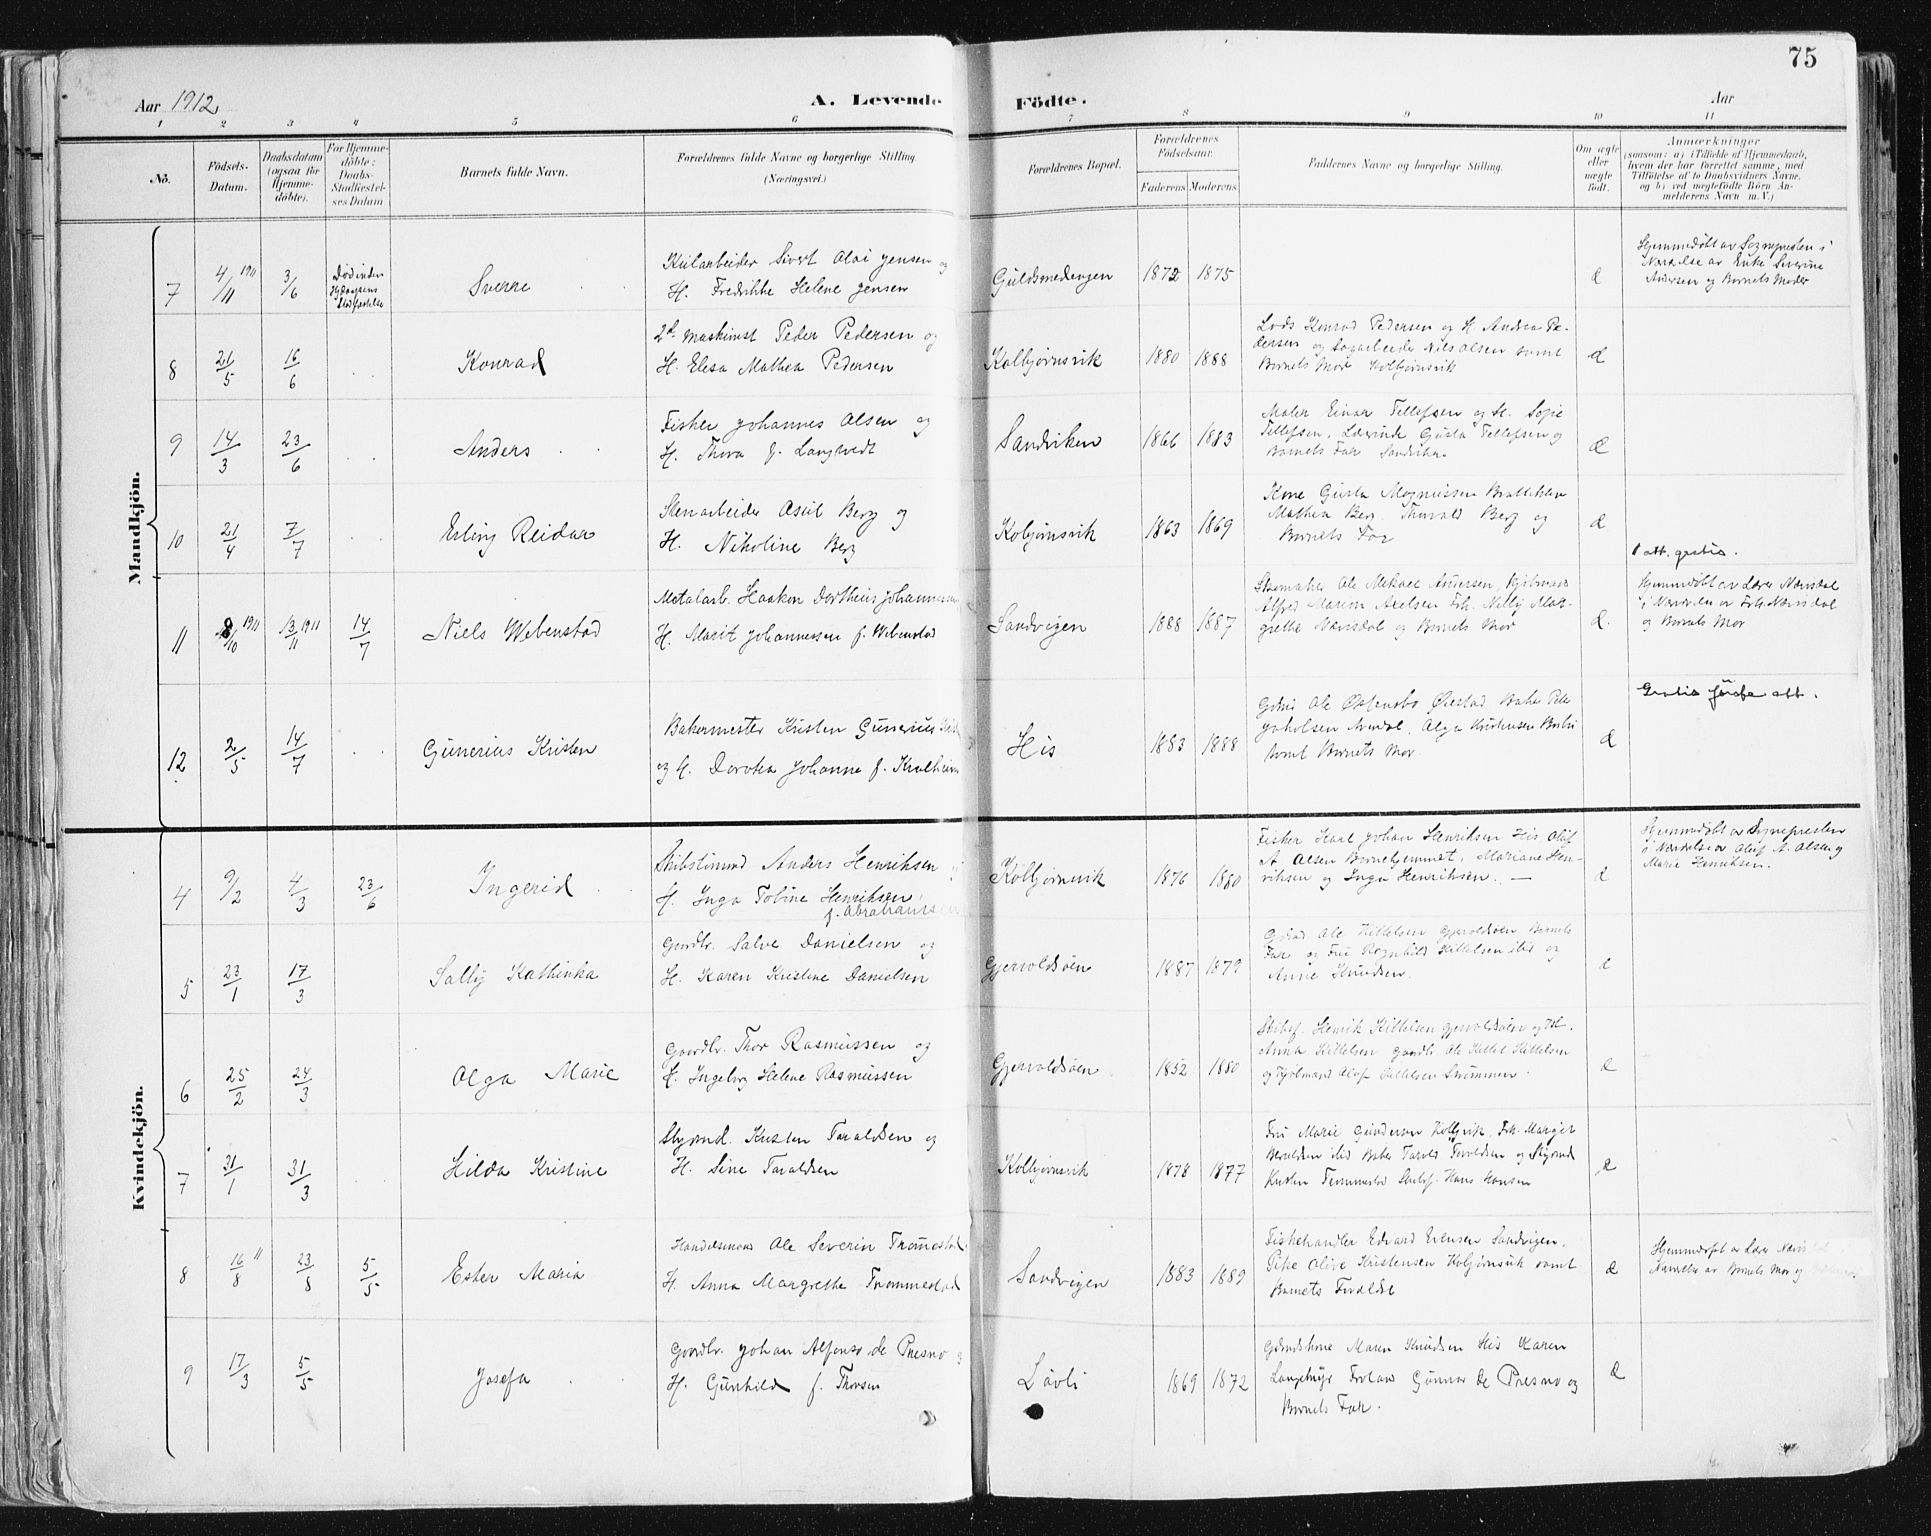 75
Aar 1912. A. Levende Födte. Aar
1 2 3 4 5 6 7 8 9 10 11
No. Födsels-Datum. Daabsdatum (ogsaa for Hjemme-döbte). For Hjemme-döbte: Daabs-Stadfæstel-ses Datum Barnets fulde Navn. Forældrenes fulde Navne og borgerlige Stilling. (Næringsvei.) Forældrenes Bopæl. Forældrenes Födselsaar. Faderens Moderens Faddernes Navne og borgerlige Stilling. Om ægte eller uægte födt. Anmærkninger (saasom: a) i Tilfælde af Hjemmedaab, hvem der har forrettet samme, med Tilföielse af to Daabsvidners Navne, og b) ved uægtefödte Börn An-melderens Navn m. V.)
Mandkjön.
7 4/11 1911 3/6 Død inden Stadfæstelse Sverre
Kularbeider Sivert Olai Jensen og
H. Fredrikke Helene Jensen
Guldsmedengen 1872 1875 æ
Hjemmedøbt av Sognepresten i
Nærvælse av Enke Severine
Andersen og Barnets Moder
8 21/5 16/6 Konrad
2d Maskinist Peder Pedersen og
H. Elesa Mathea Pedersen
Kolbjørnsvik 1880 1888
Lods Konrad Pedersen og H. Andrea Pe-
dersen og Nils Olsen samt
Barnets Mor Kolbjørnsvik æ
9 14/3 23/6 Anders
Fisker Johannes Olsen og
H. Thora f. Langvedt
Sandviken 1866 1883
Maler Einar Tellefsen og H. Sofie
Tellefsen, Lærinde Gusta Tellefsen og
Barnets Far Sandviken æ
10 21/4 7/7 Erling Reidar
Stenarbeider Asul Berg og
H. Nikoline Berg
Kobjørnsvik 1863 1869
Kone Gusta Magnussen Bratteklev
Mathea Berg, Thorvald Berg og
Barnets Far æ
1 att. gratis.
11 8/10 1911 13/11 1911 14/7 Niels Webenstad
Metalarb. Haakon Dortheus Johannessen
H. Marit Johannessen f. Webenstad
Sandvigen 1888 1887
Skomaker Ole Mikael Andersen, Kjølmand
Alfred Marin Axelsen Frk. Nelly Mar-
grethe Næsdal og Barnets Mor æ.
Hjemmedøbt av Lærer Næsdal
i Nærvælse av Frk. Næsdal
og Barnets Mor
12 2/5 14/7 Gunerius Kristen
Bakermester Kristen Gunerius
og H. Dorthea Johanne f.
His 1883 1888
Ole Øiestad Baker Peder
Jakobsen Arendal, Olga Kristensen
samt Barnets Mor. æ
Gratis første att.
Kvindekjön.
4 9/2 4/3 23/6 Ingerid
Skibstimmd Anders Henriksen
H. Inga Tobine Henriksen,
f. Abrahamsen
Kolbjørnsvik 1876 1880
Fisker Karl Johan Henriksen His, Oluf
A. Olsen Barnehjemmet, Mariane Hen-
riksen og Inga Henriksen. — æ
Hjemmedøbt av Sognepresten
i Nærvælse av Oluf A. Olsen og
Marie Henriksen.
5 23/1 17/3 Sally Kathinka
Gaardbr. Salve Danielsen og
H. Karen Kristine Danielsen
Gjervoldsøen 1887 1879
Ole Kittelsen Gjervoldsøen Barnets
Far og Fru Ragnhild Kittelsen ibid og
Anne Knudsen. æ
6 25/2 24/3 Olga Marie
Gaardbr. Thor Rasmussen og
H. Ingeborg Helene Rasmussen
Gjervoldsøen 1852 1880
Skibsf. Henrik Kittelsen Gjervoldsøen og
Anna Kittelsen gaardbr Ole Kittel Kittelsen
og Kjølmand Olaf Kittelsen Strømmen. æ
7 31/1 31/3 Hilda Kristine
Styrmd. Kristen Taraldsen og
H. Sine Taraldsen
Kolbjørnsvik 1878 1877
Fru Marie Gundersen Kolbjvik, Frk. Margit
ibid Baker Tarald Taraldsen og Styrmd
Kristen Trommestad Skibsf. Hans Hansen æ
8 16/8 11 23/8 5/5 Ester Maria
Handelsmand Ole Severin Tromestad
H. Anna Margrethe Trommestad
Sandvigen 1883 1889
Fiskehandler Edvard Evensen Sandvigen.
Pike Olive Kristensen Kolbjørnsvik samt
Barnets Forældre æ
Hjemmedøbt av Lærer Næsdal
Nærvælse av Barnets Mor og
9 17/3 5/5 Josefa
Gaardbr. Johan Alfonso de Presno og
H. Gunhild f. Thorsen
Løvli 1869 1872
Maren Knudsen His Karen
Langemyr Froland Gunnar de Presno og
Barnets Far. æ